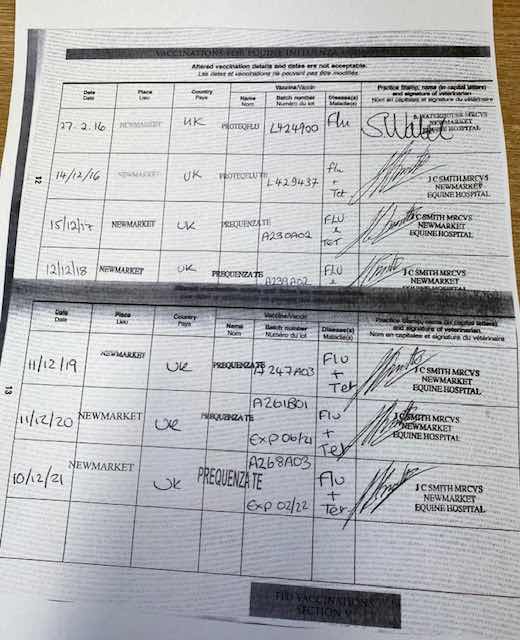 VACCINATIONS FOR EQUINE INFLUENZA
Altered vaccination details and dates are not acceptable.
Les dates et vaccinations ne peuvent pas être modifiés.
Date Place Country Vaccine/Vaccin Disease(s) Practice Stamp, name (in capital letters)
Date Lieu Pays Name Batch number Maladie(s) and signature of veterinarian
Nom Numéro du lot Nom en capitales et signature du vétérinaire
27.2.16 NEWMARKET UK PROTEQFLU L424900 Flu S. WATERHOUSE MRCVS
NEWMARKET
EQUINE HOSPITAL
14/12/16 NEWMARKET UK PROTEQFLU TE L429437 flu + Tet J C SMITH MRCVS
NEWMARKET
EQUINE HOSPITAL
12
15/12/17 NEWMARKET UK PREQUENZA TE A230A02 FLU & TET J C SMITH MRCVS
NEWMARKET
EQUINE HOSPITAL
12/12/18 NEWMARKET UK PREQUENZA TE A239A02 FLU & J C SMITH MRCVS
NEWMARKET
EQUINE HOSPITAL
Date Place Country Vaccine/Vaccin Disease(s) Practice Stamp, name (in capital letters)
Date Lieu Pays Name Batch number Maladie(s) and signature of veterinarian
Nom Numéro du lot Nom en capitales et signature du vétérinaire
11/12/19 NEWMARKET UK PREQUENZA TE A247A03 Flu + Tet J C SMITH MRCVS
NEWMARKET
EQUINE HOSPITAL
13
11/12/20 NEWMARKET UK PREQUENZA TE A261B01 Flu + Tet J C SMITH MRCVS
EXP 06/21 NEWMARKET
EQUINE HOSPITAL
10/12/21 NEWMARKET UK PREQUENZA TE A268A03 Flu + Tet J C SMITH MRCVS
EXP 02/22 NEWMARKET
EQUINE HOSPITAL
FLU VACCINATIONS
SECTION V